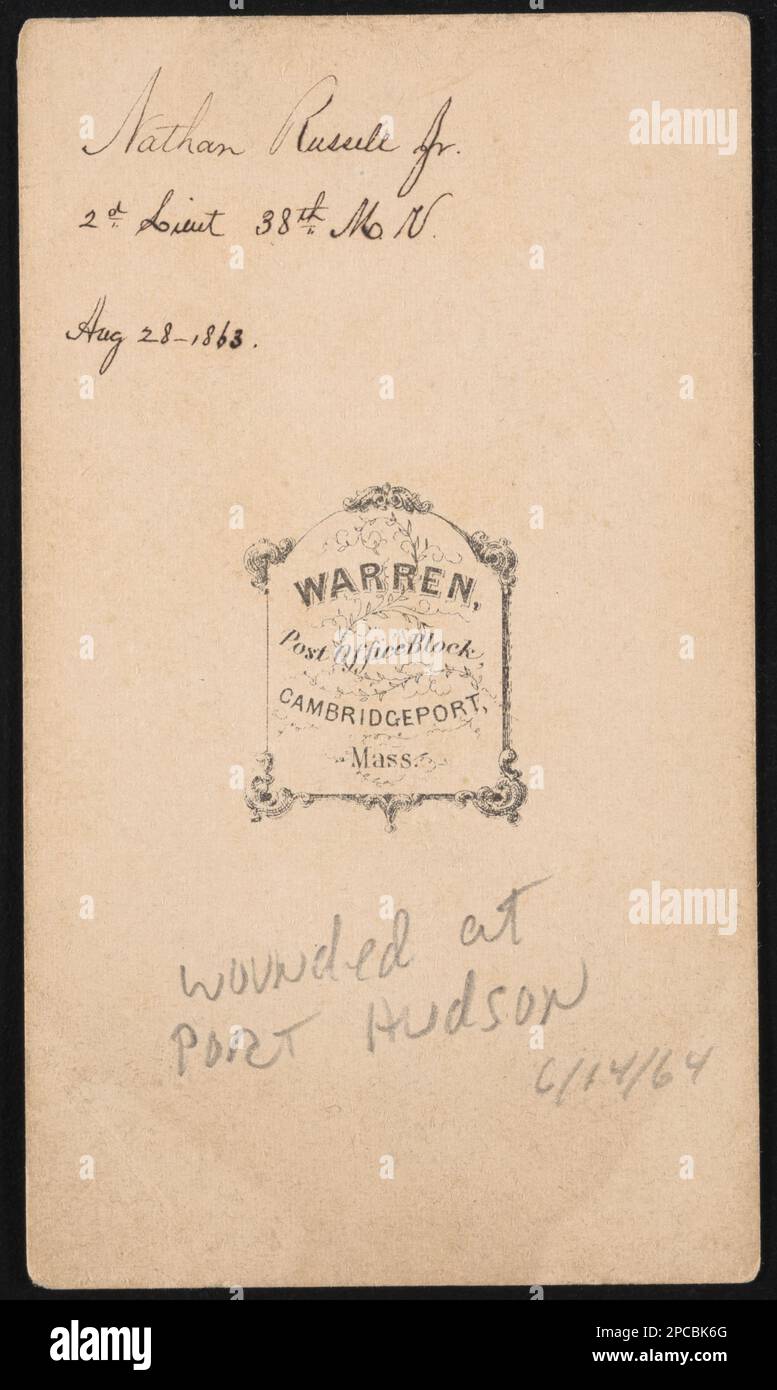 Nathan Russell Jr.
2d Lieut 38th M.V.
Aug 28-1863.
WARREN,
Post Office Block,
CAMBRIDGEPORT,
Mass.
wounded at
Port Hudson
6/14/64
alamy
alamy
a
alamy
Image ID: 2PCBK6G
www.alamy.com